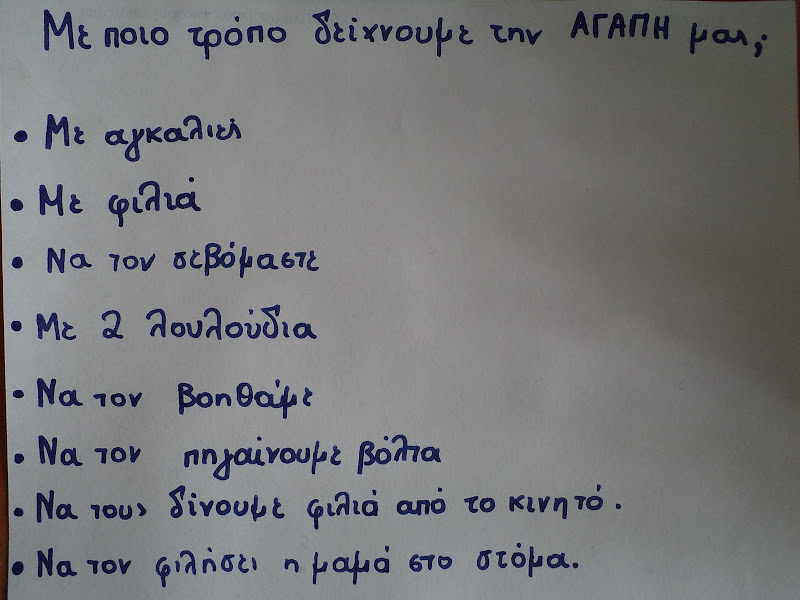 Με ποιο τρόπο δείχνουμε την ΑΓΑΠΗ μας;
• Με αγκαλιές
• Με φιλιά
• Να τον σεβόμαστε
• Με 2 λουλούδια
• Να τον βοηθάμε
• Να τον πηγαίνουμε βόλτα
• Να τους δίνουμε φιλιά από το κινητό.
• Να τον φιλήσει η μαμά στο στόμα.